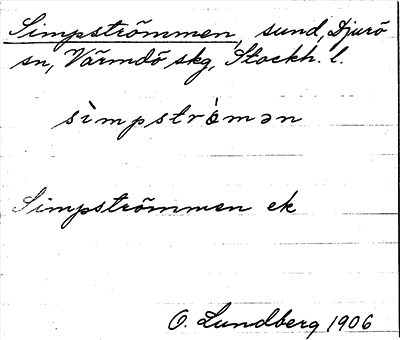 Simpströmmen, sund, Djurö
sn, Värmdö skg, Stockh. l.
sìmpstrò̈mən
Simpströmmen ek
O. Lundberg 1906